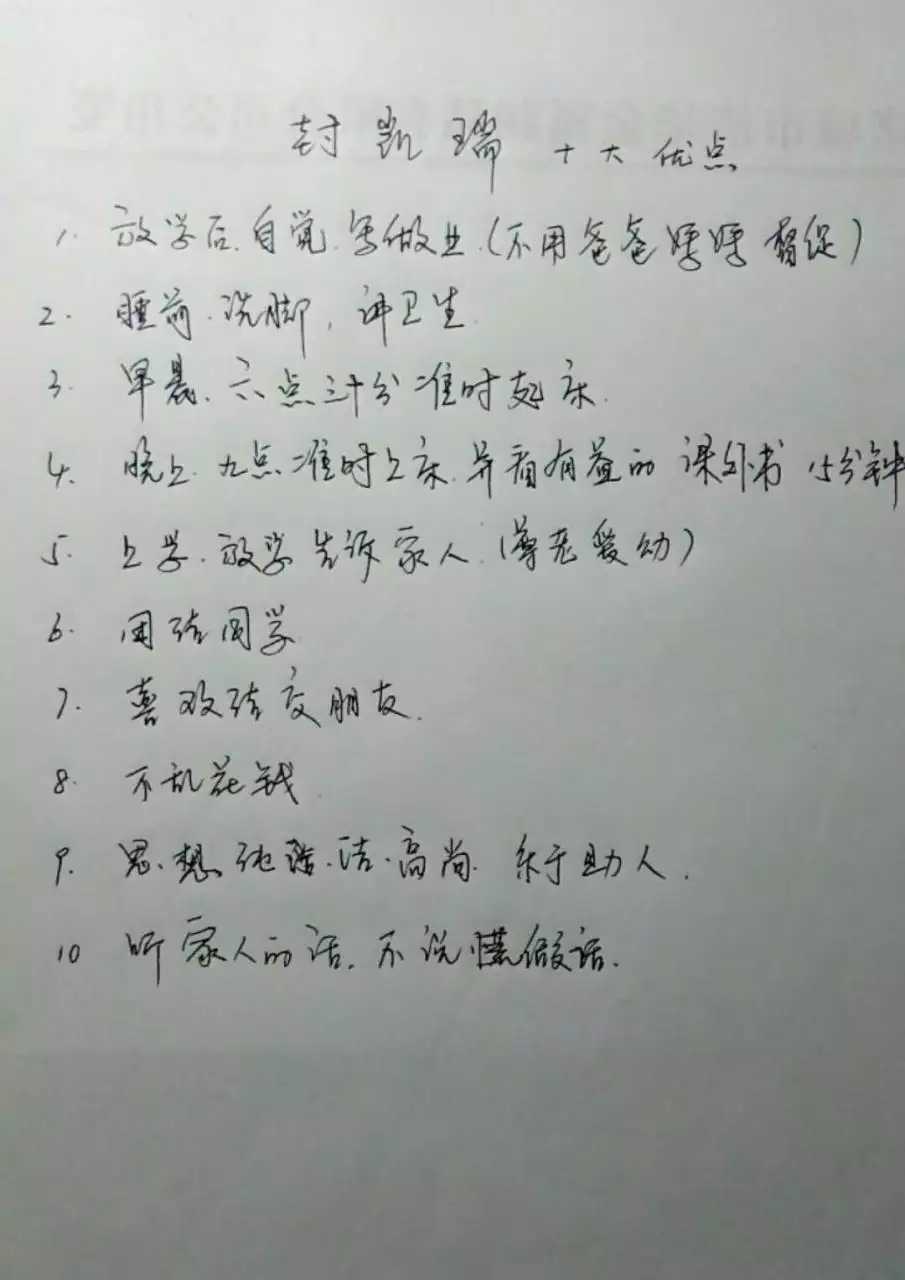 封凯瑞 十大优点
1. 放学后.自觉.写做业.(不用爸爸妈妈督促)
2. 睡前.洗脚,讲卫生.
3. 早晨.六点三十分准时起床.
4. 晚上.九点准时上床.并看有益的课外书 15分钟
5. 上学.放学告诉家人.(尊老爱幼)
6. 团结同学
7. 喜欢结交朋友.
8. 不乱花钱.
9. 思想纯洁.高尚.乐于助人.
10 听家人的话.不说谎做话.